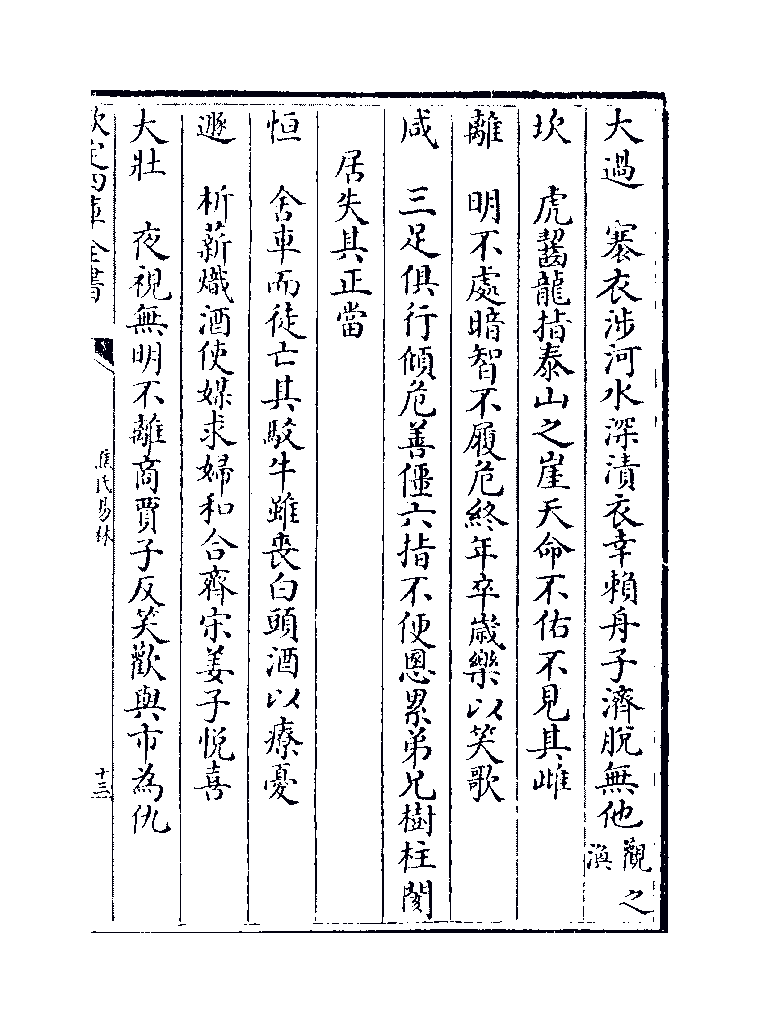 大過　褰衣涉河水深漬衣幸賴舟子濟脫無他觀之渙
坎　虎齧龍指泰山之崖天命不佑不見其雌
離　明不處暗智不履危終年卒歲樂以笑歌
咸　三足俱行傾危善僵六指不便恩累弟兄樹柱閡
居失其正當
恒　舍車而徒亡其駁牛雖喪白頭酒以療憂
遯　析薪熾酒使媒求婦和合齊宋姜子悅喜
大壯　夜視無明不離商賈子反笑歡與市為仇
欽定四庫全書
焦氏易林
十三